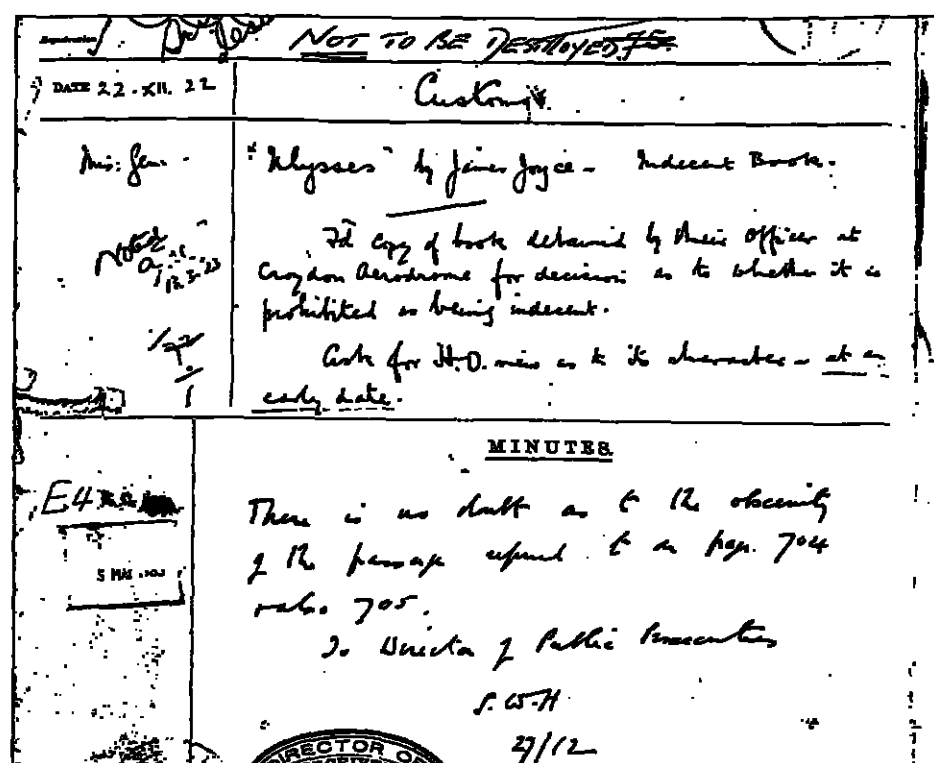 NOT TO BE DESTROYED
DATE 22.XII.22
Customs
"Ulysses" by James Joyce - Indecent Book.
Fd copy of book detained by their Officer at
Croydon Aerodrome for decision as to whether it is
prohibited as being indecent.
Ask for H.O. view as to its character - at an
early date.
Noted
MINUTES
E4
5 MAR
There is no doubt as to the obscenity
of the passage referred to on page 704
also 705.
To Director of Public Prosecutions
S.W.H
27/12
DIRECTOR OF